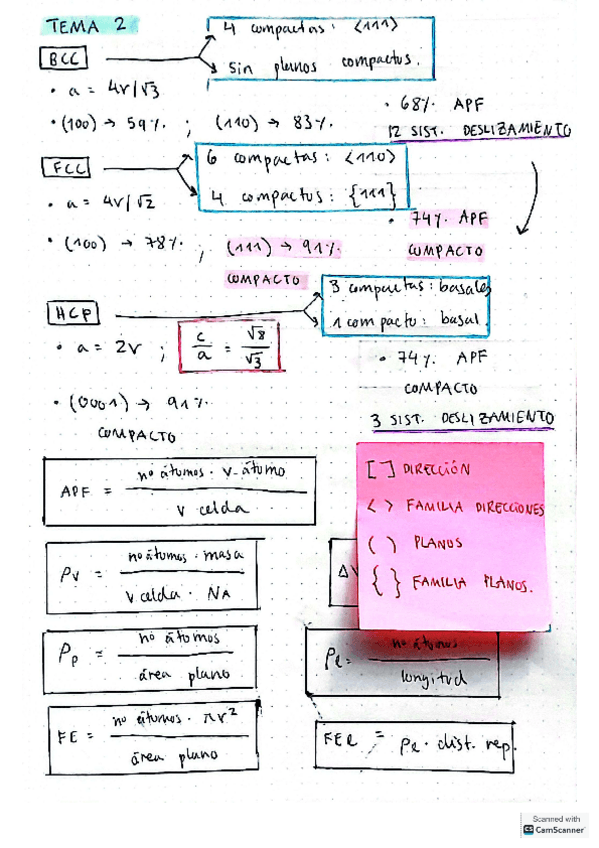 TEMA 2
4 compactas: <111>
BCC
sin planos compactos.
• a = 4r/√3
• 68% APF
• (100) → 59% ; (110) → 83%
12 SIST. DESLIZAMIENTO
6 compactas: <110>
FCC
4 compactos: {111}
• a = 4r/√2
• 74% APF
• (100) → 78% ; (111) → 91%
COMPACTO
COMPACTO
3 compactas: basales
HCP
1 compacto: basal
• a = 2r ; c/a = √8/√3
• 74% APF
COMPACTO
• (0001) → 91%
COMPACTO
3 SIST. DESLIZAMIENTO
APF = nº átomos · v átomo / v celda
[ ] DIRECCIÓN
< > FAMILIA DIRECCIONES
( ) PLANOS
{ } FAMILIA PLANOS.
ρv = nº átomos · masa / v celda · NA
ΔV
ρp = nº átomos / área plano
ρl = nº átomos / longitud
FE = nº átomos · πr² / área plano
FEl = ρl · dist. rep.
Scanned with
CS CamScanner